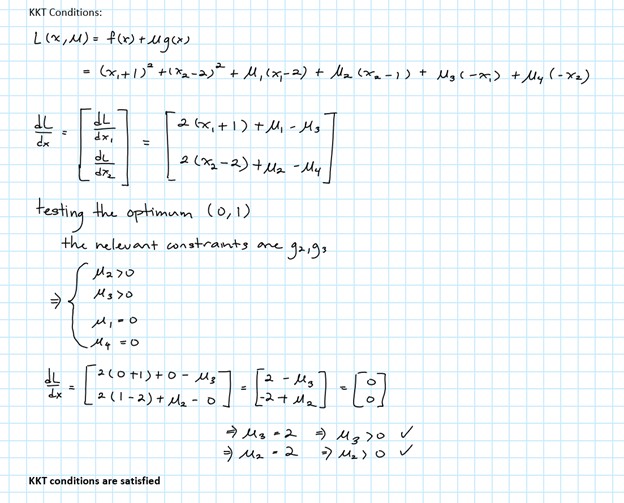 KKT Conditions:
L(x,μ) = f(x) + μg(x)
= (x₁+1)² + (x₂-2)² + μ₁(x₁-2) + μ₂(x₂-1) + μ₃(-x₁) + μ₄(-x₂)
dL/dx = [dL/dx₁ dL/dx₂] = [2(x₁+1) + μ₁ - μ₃ 2(x₂-2) + μ₂ - μ₄]
testing the optimum (0,1)
the relevant constraints are g₂,g₃
⇒ { μ₂>0
μ₃>0
μ₁=0
μ₄=0
dL/dx = [2(0+1)+0-μ₃ 2(1-2)+μ₂-0] = [2-μ₃ -2+μ₂] = [0 0]
⇒ μ₃ = 2 ⇒ μ₃>0 ✓
⇒ μ₂ = 2 ⇒ μ₂>0 ✓
KKT conditions are satisfied